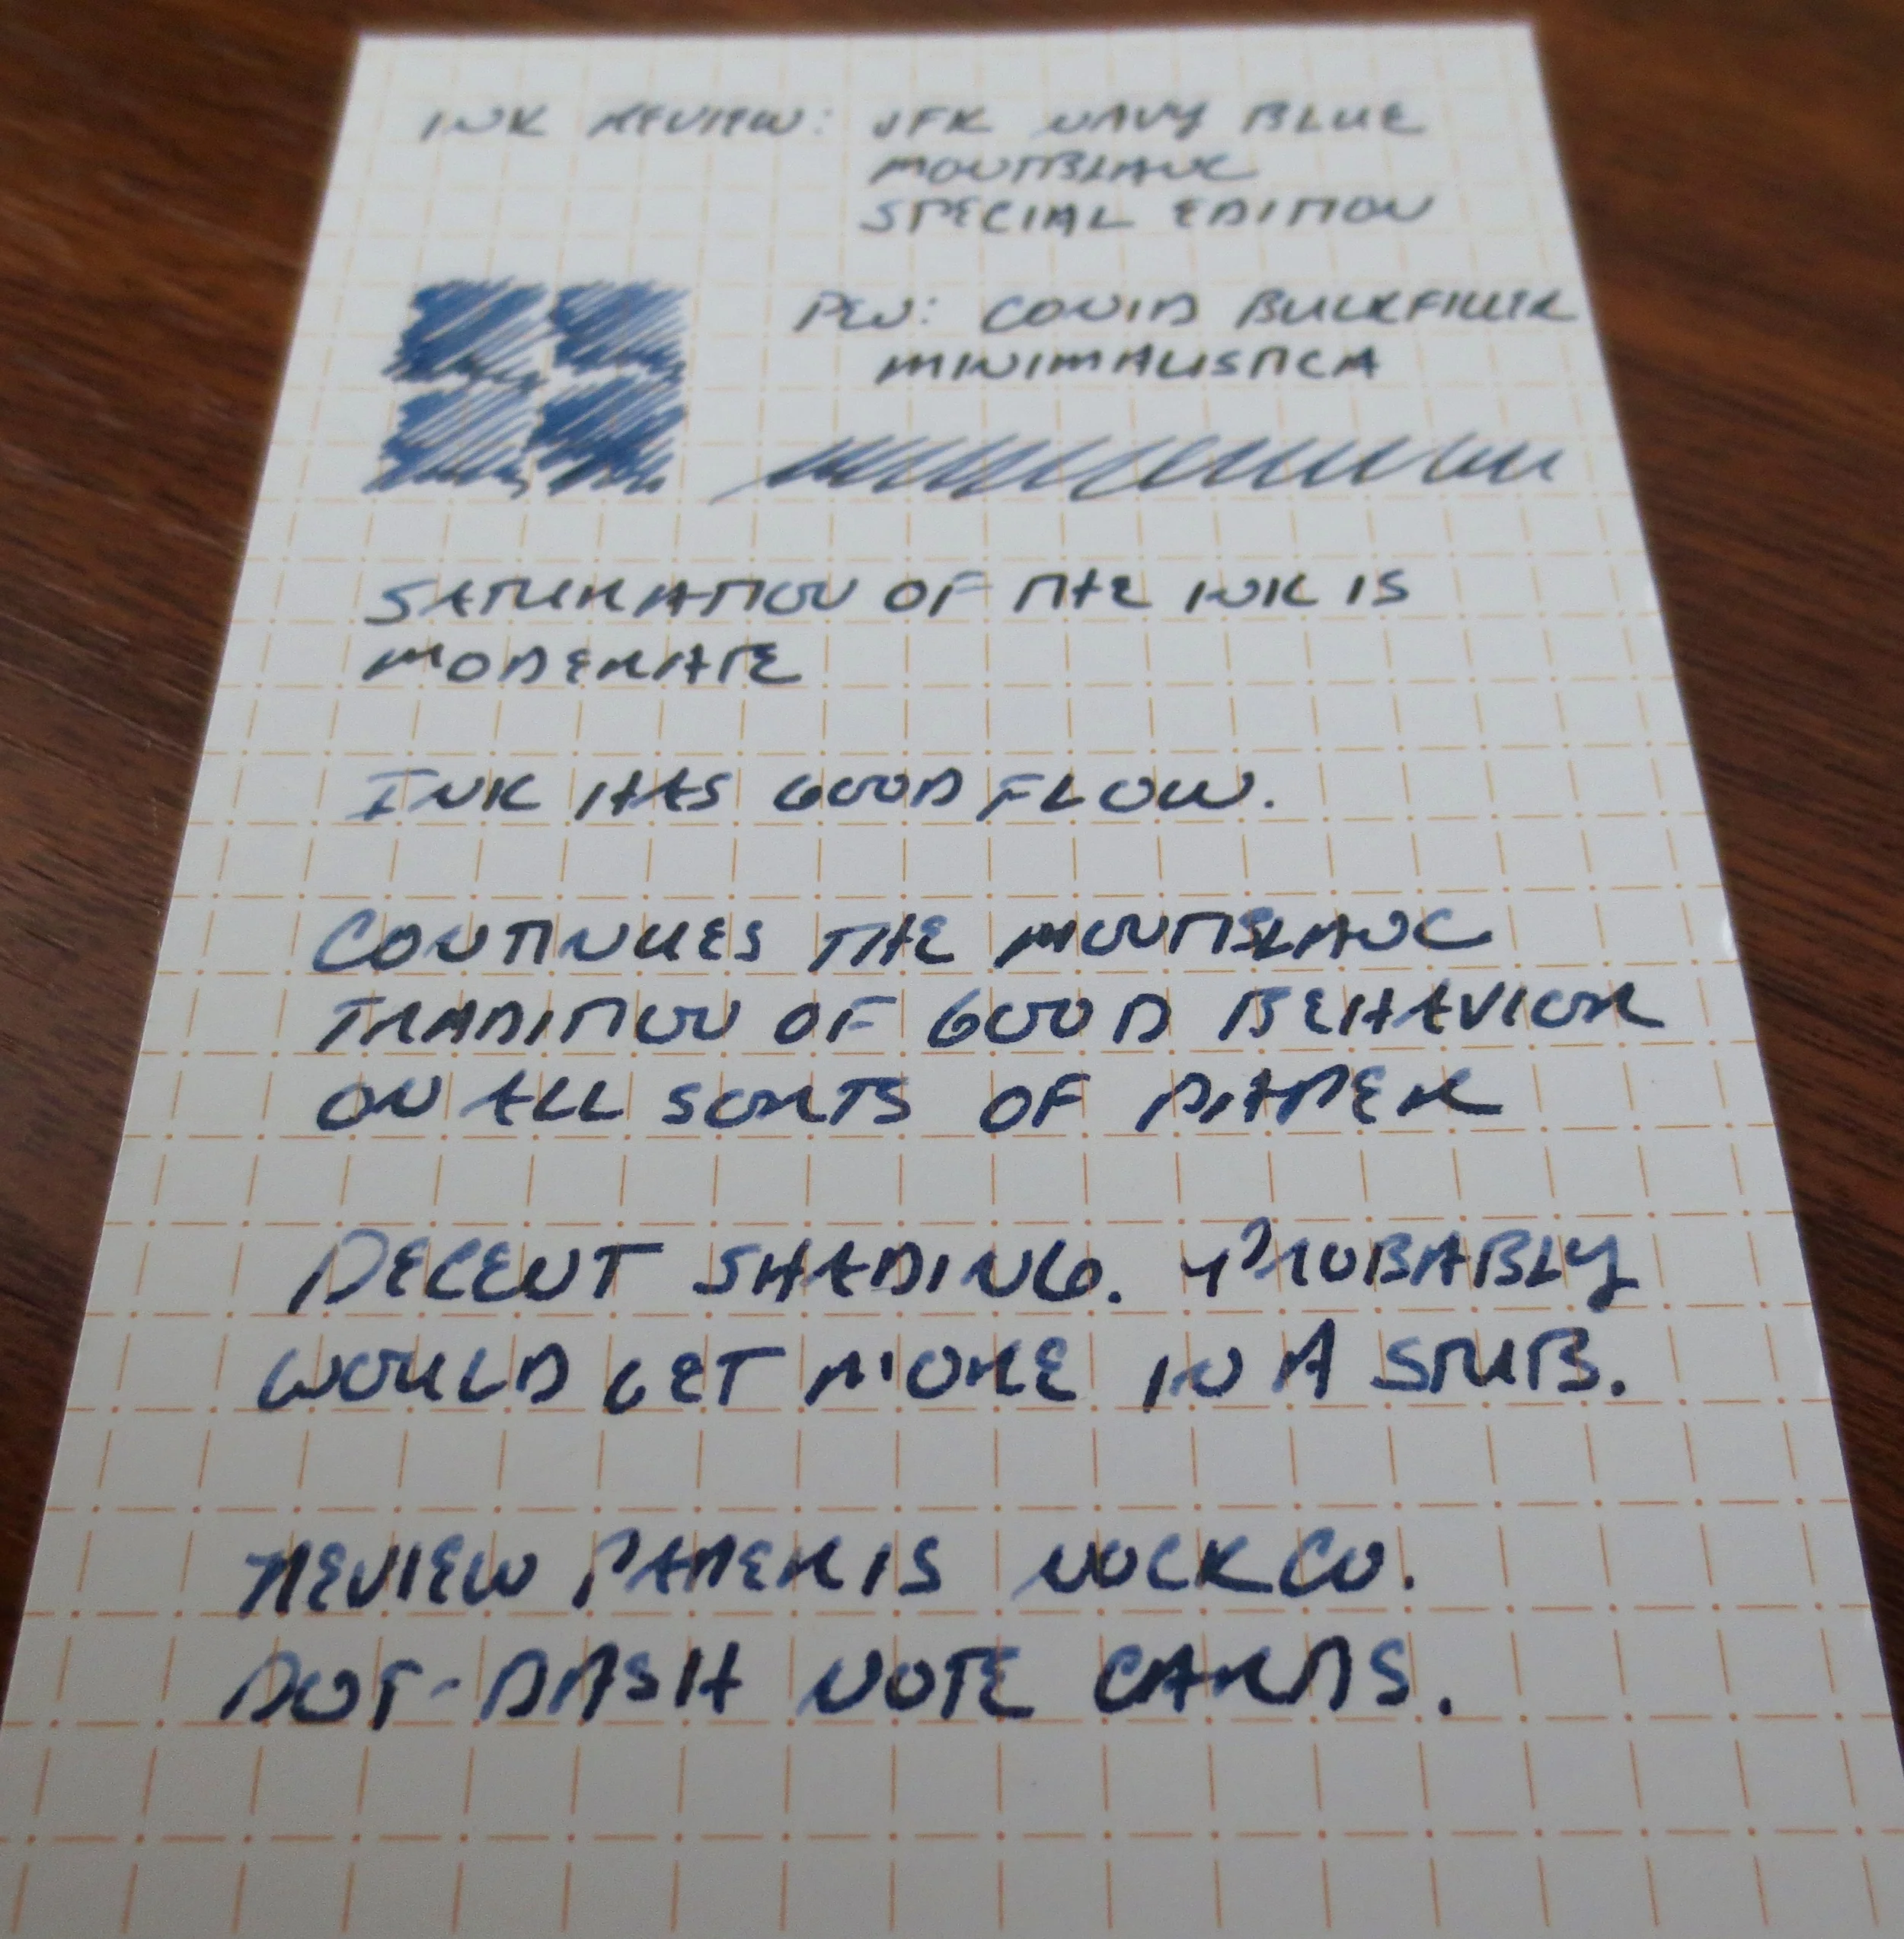 INK REVIEW: JFK NAVY BLUE
MONTBLANC
SPECIAL EDITION
PEN: CONID BULKFILLER
MINIMALISTICA
SATURATION OF THE INK IS
MODERATE
INK HAS GOOD FLOW.
CONTINUES THE MONTBLANC
TRADITION OF GOOD BEHAVIOR
ON ALL SORTS OF PAPER
DECENT SHADING. PROBABLY
WOULD GET MORE IN A STUB.
REVIEW PAPER IS NOCK CO.
DOT-DASH NOTE CARDS.